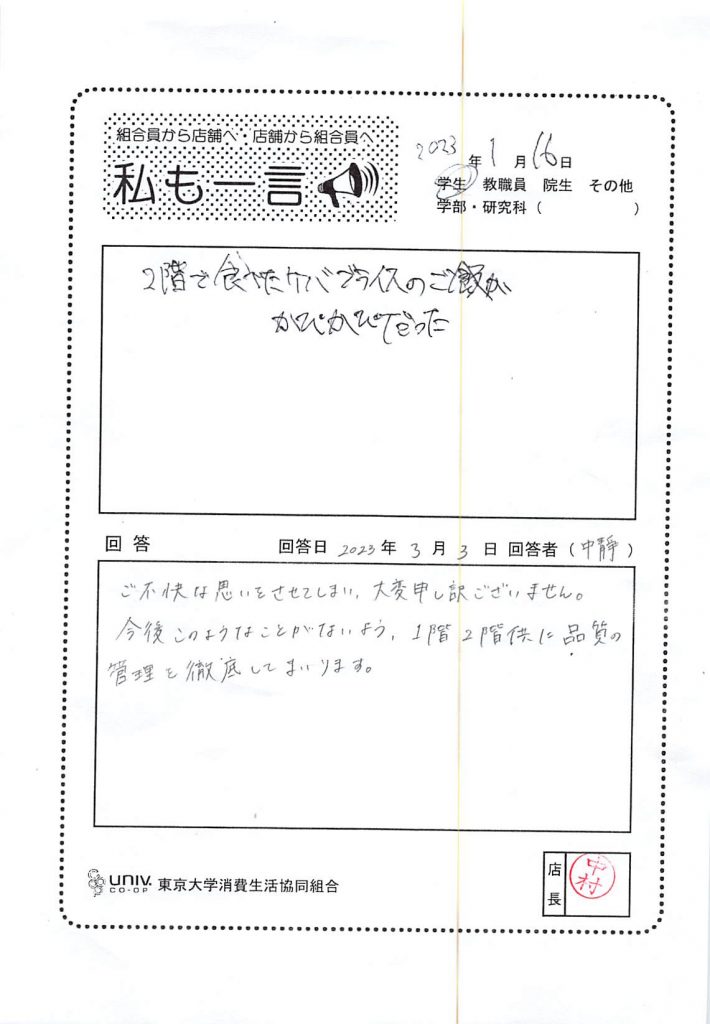 組合員から店舗へ・店舗から組合員へ
私も一言
2023年1月16日
学生 教職員 院生 その他
学部・研究科（ ）
2階で食べたケバブライスのご飯が
かぴかぴだった
回答 回答日 2023年3月3日 回答者（中静）
ご不快な思いをさせてしまい、大変申し訳ございません。
今後このようなことがないよう、1階2階供に品質の
管理を徹底してまいります。
UNIV.
CO-OP
東京大学消費生活協同組合
店長
中村